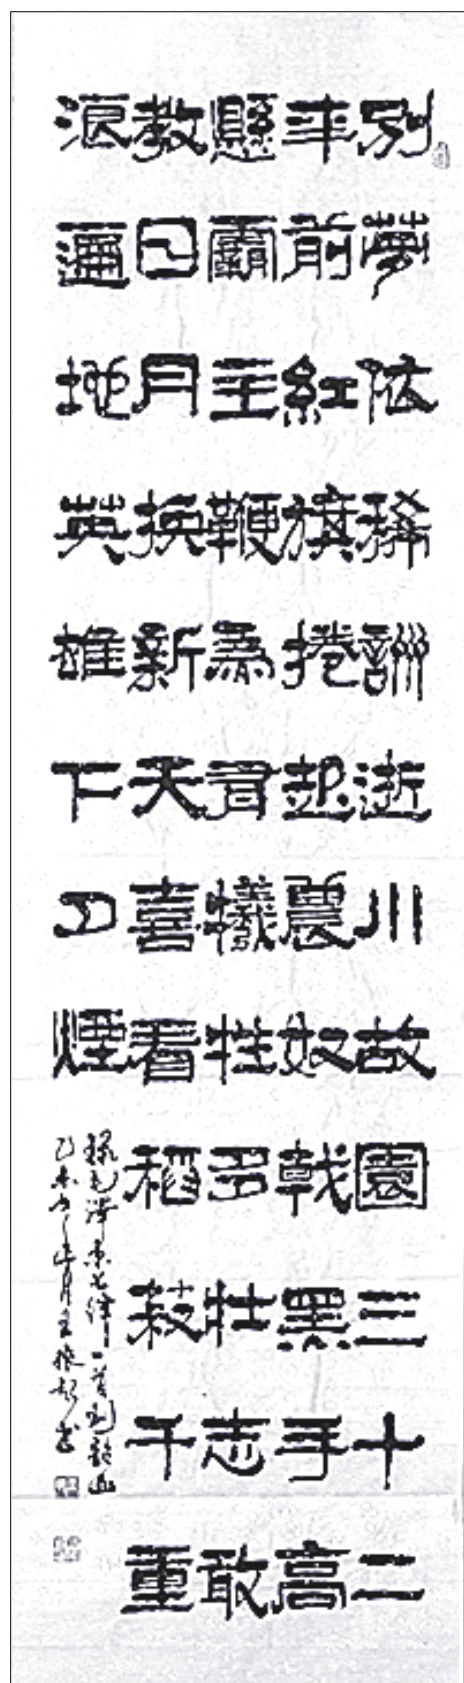 別夢依稀詶逝川故園三十二
年前紅旗捲起農奴戟黑手高
懸霸主鞭為有犧牲多壯志敢
教日月換新天喜看稻菽千重
浪遍地英雄下夕煙
錄毛澤東七律一首到韶山
乙未年月王振書